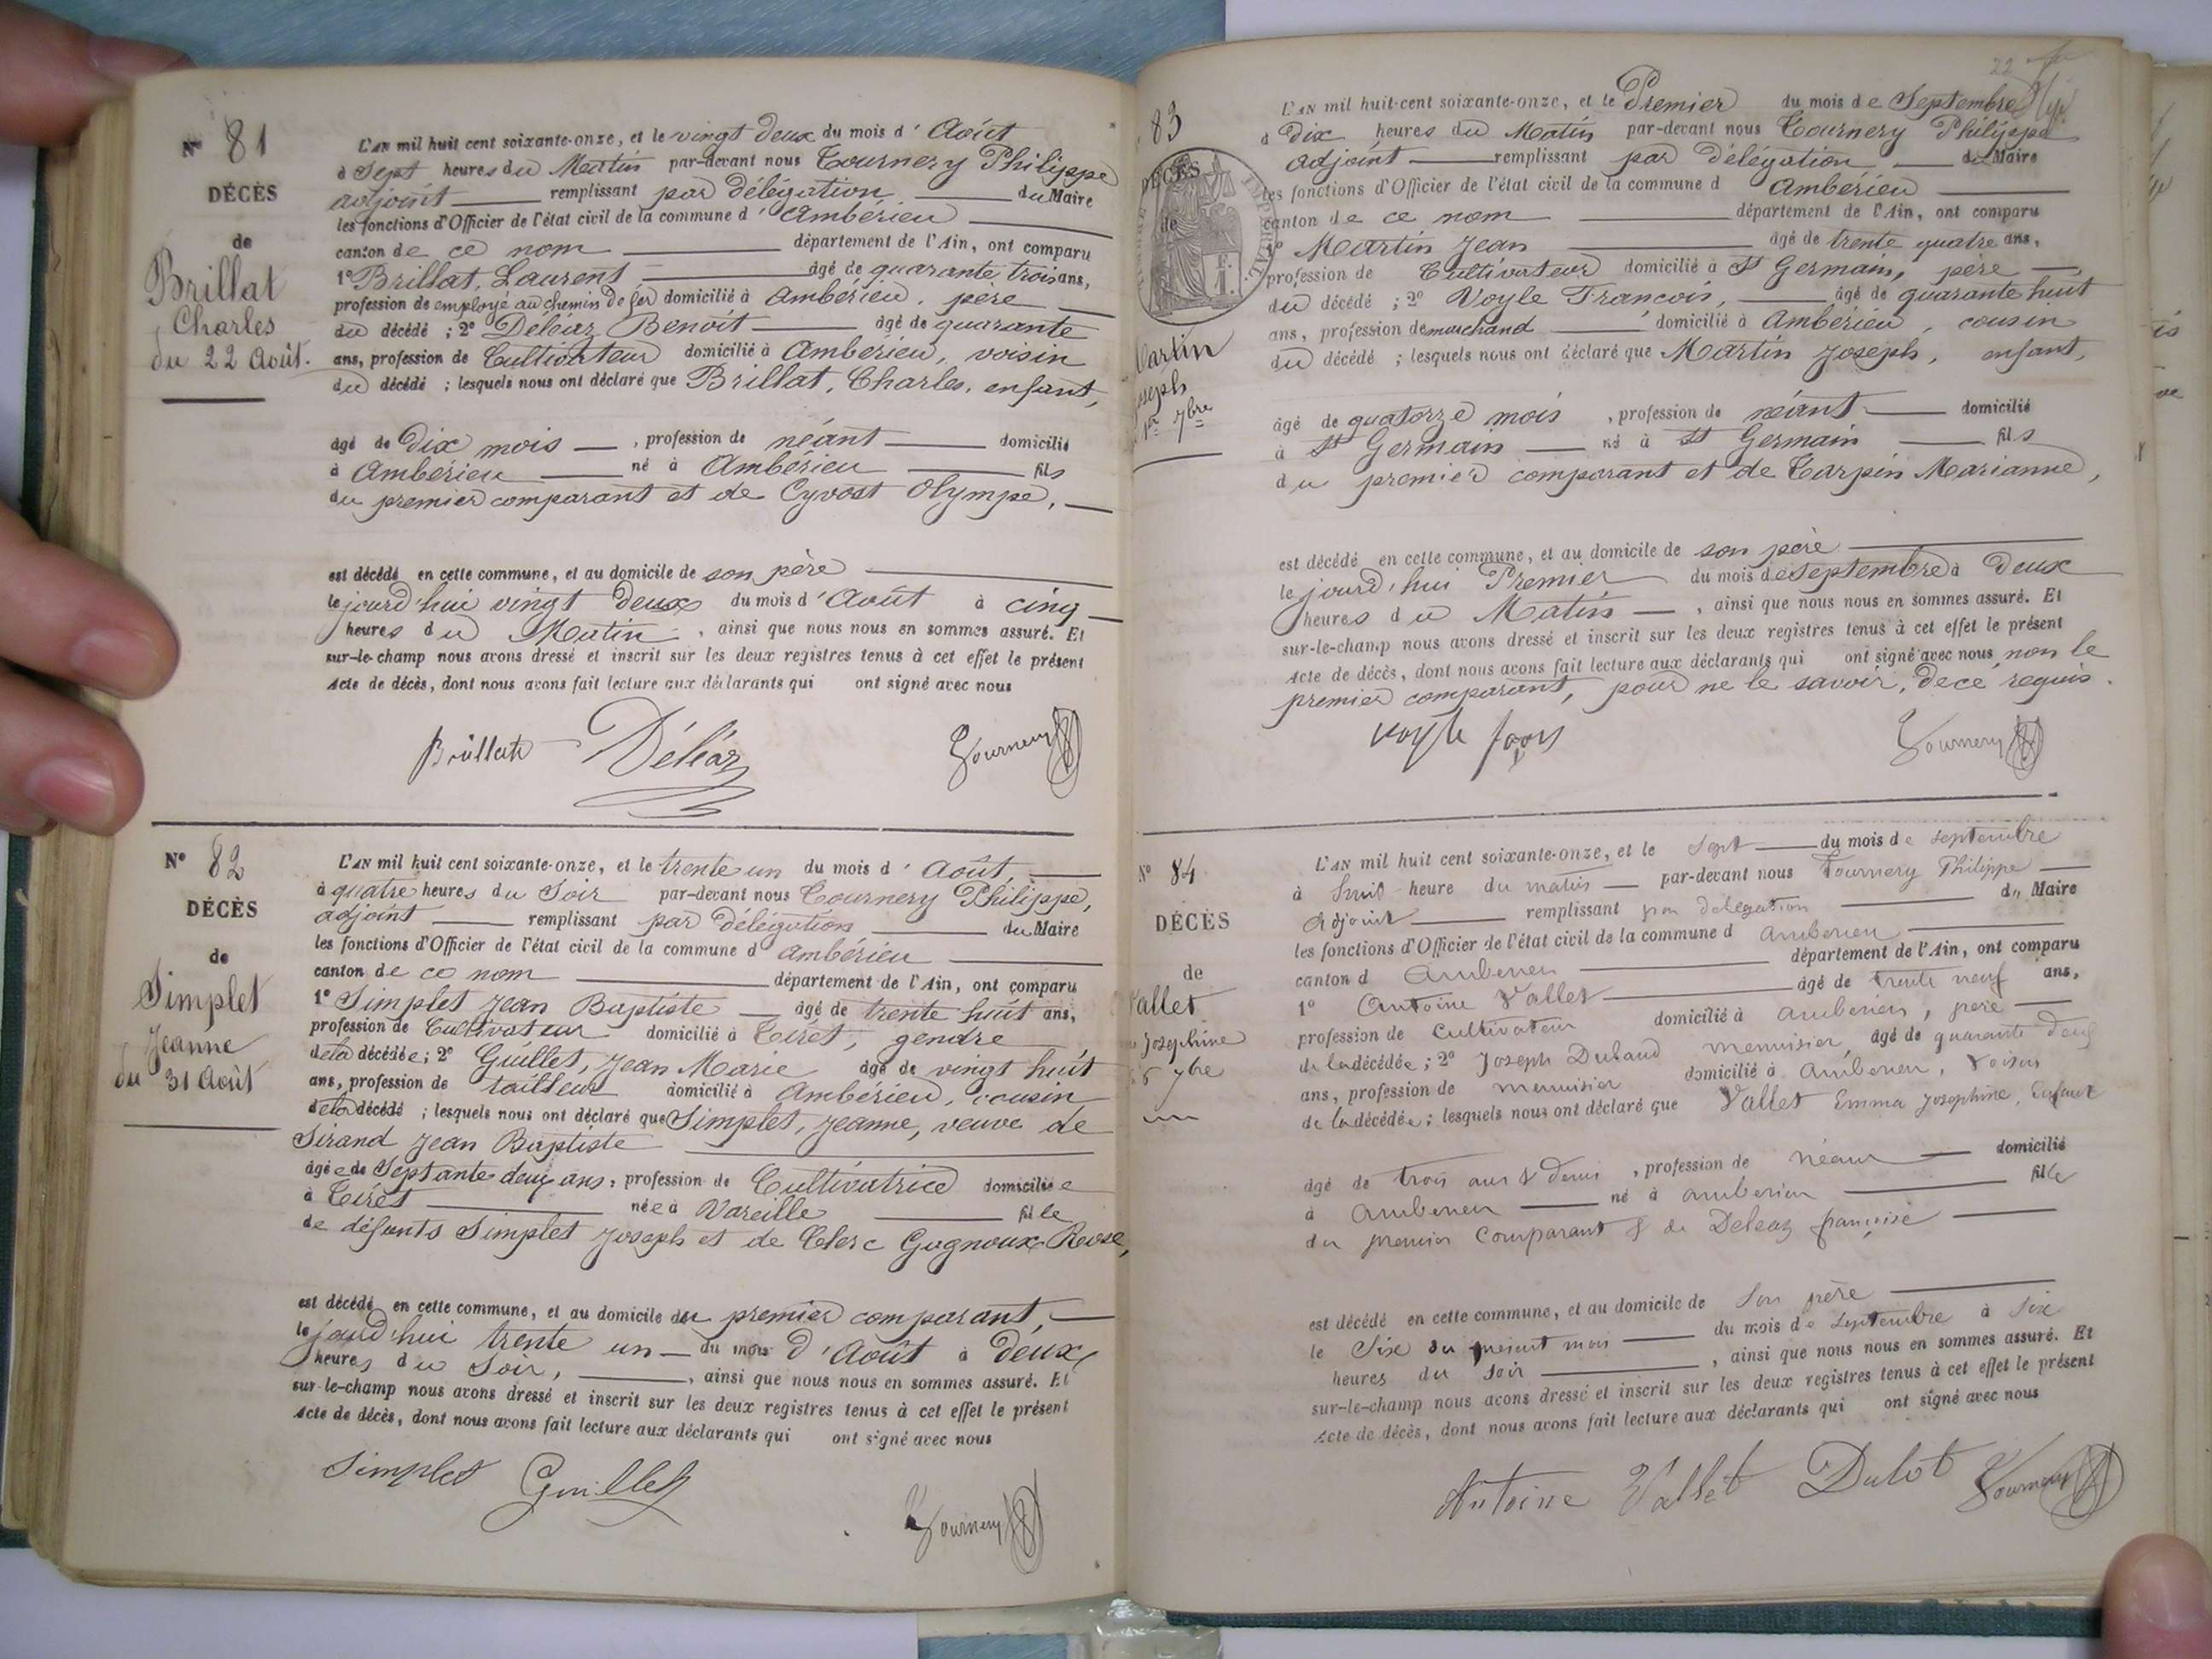 N° 81
DÉCÈS
de
Brillat
Charles
du 22 Août.
L'AN mil huit cent soixante-onze, et le vingt deux du mois d'Août
à Sept heures du Matin par-devant nous Tournery Philippe
adjoint remplissant par délégation du Maire
les fonctions d'Officier de l'état civil de la commune d'Ambérieu
canton de ce nom département de l'Ain, ont comparu
1° Brillat, Laurent âgé de quarante trois ans,
profession de employé au chemin de fer domicilié à Ambérieu, père
du décédé ; 2° Déléaz, Benoit âgé de quarante
ans, profession de Cultivateur domicilié à Ambérieu, voisin
du décédé ; lesquels nous ont déclaré que Brillat, Charles, enfant,
âgé de Dix mois, profession de néant domicilié
à Ambérieu né à Ambérieu fils
du premier comparant et de Cyvost Olympe,
est décédé en cette commune, et au domicile de son père
le jourd'hui vingt deux du mois d'Août à cinq
heures du Matin, ainsi que nous nous en sommes assuré. Et
sur-le-champ nous avons dressé et inscrit sur les deux registres tenus à cet effet le présent
Acte de décès, dont nous avons fait lecture aux déclarants qui ont signé avec nous
Brillat Déléaz Tournery
N° 82
DÉCÈS
de
Simplet
Jeanne
du 31 Août
L'AN mil huit cent soixante-onze, et le trente un du mois d'Août,
à quatre heures du Soir par-devant nous Tournery Philippe,
adjoint remplissant par délégation du Maire
les fonctions d'Officier de l'état civil de la commune d'Ambérieu
canton de ce nom département de l'Ain, ont comparu
1° Simplet Jean Baptiste âgé de trente huit ans,
profession de Cultivateur domicilié à Tirét, gendre
de la décédée ; 2° Guillet, Jean Marie âgé de vingt huit
ans, profession de tailleur domicilié à Ambérieu, cousin
de la décédé ; lesquels nous ont déclaré que Simplet, Jeanne, veuve de
Sirand Jean Baptiste
âgée de Septante deux ans, profession de Cultivatrice domiciliée
à Tirét née à Vareille fille
de défunts Simplet Joseph et de Clerc Gagnoux Rose,
est décédé en cette commune, et au domicile du premier comparant,
le jourd'hui trente un du mois d'Août à deux
heures du Soir, ainsi que nous nous en sommes assuré. Et
sur-le-champ nous avons dressé et inscrit sur les deux registres tenus à cet effet le présent
Acte de décès, dont nous avons fait lecture aux déclarants qui ont signé avec nous
Simplet Guillet Tournery
22
83
DÉCÈS
de
Martin
Joseph
1er 7bre
L'AN mil huit-cent soixante-onze, et le Premier du mois de Septembre
à Dix heures du Matin par-devant nous Tournery Philippe
adjoint remplissant par délégation du Maire
les fonctions d'Officier de l'état civil de la commune d Ambérieu
canton de ce nom département de l'Ain, ont comparu
1° Martin Jean âgé de trente quatre ans,
profession de Cultivateur domicilié à St Germain, père
du décédé ; 2° Voyle François, âgé de quarante huit
ans, profession de marchand domicilié à Ambérieu, cousin
du décédé ; lesquels nous ont déclaré que Martin Joseph, enfant,
âgé de quatorze mois, profession de néant domicilié
à St Germain né à St Germain fils
du premier comparant et de Tarpin Marianne,
est décédé en cette commune, et au domicile de son père
le jourd'hui Premier du mois de Septembre à Deux
heures du Matin, ainsi que nous nous en sommes assuré. Et
sur-le-champ nous avons dressé et inscrit sur les deux registres tenus à cet effet le présent
Acte de décès, dont nous avons fait lecture aux déclarants qui ont signé avec nous, non le
premier comparant, pour ne le savoir, de ce requis.
Voyle Tournery
N° 84
DÉCÈS
de
Vallet
Josephine
6 7bre
L'AN mil huit cent soixante-onze, et le Sept du mois de septembre
à huit heure du matin par-devant nous Tournery Philippe
Adjoint remplissant par délégation du Maire
les fonctions d'Officier de l'état civil de la commune d Amberieu
canton d Amberieu département de l'Ain, ont comparu
1° Antoine Vallet âgé de trente neuf ans,
profession de cultivateur domicilié à Amberieu, père
de la décédée ; 2° Joseph Dubaud menuisier, âgé de quarante deux
ans, profession de menuisier domicilié à Amberieu, voisin
de la décédée ; lesquels nous ont déclaré que Vallet Emma Josephine, Enfant
âgé de trois ans & demi, profession de néant domicilié
à Amberieu né à Amberieu fille
du premier comparant & de Deleaz françoise
est décédé en cette commune, et au domicile de son père
le Six du présent mois du mois de septembre à six
heures du soir, ainsi que nous nous en sommes assuré. Et
sur-le-champ nous avons dressé et inscrit sur les deux registres tenus à cet effet le présent
Acte de décès, dont nous avons fait lecture aux déclarants qui ont signé avec nous
Antoine Vallet Dubot Tournery